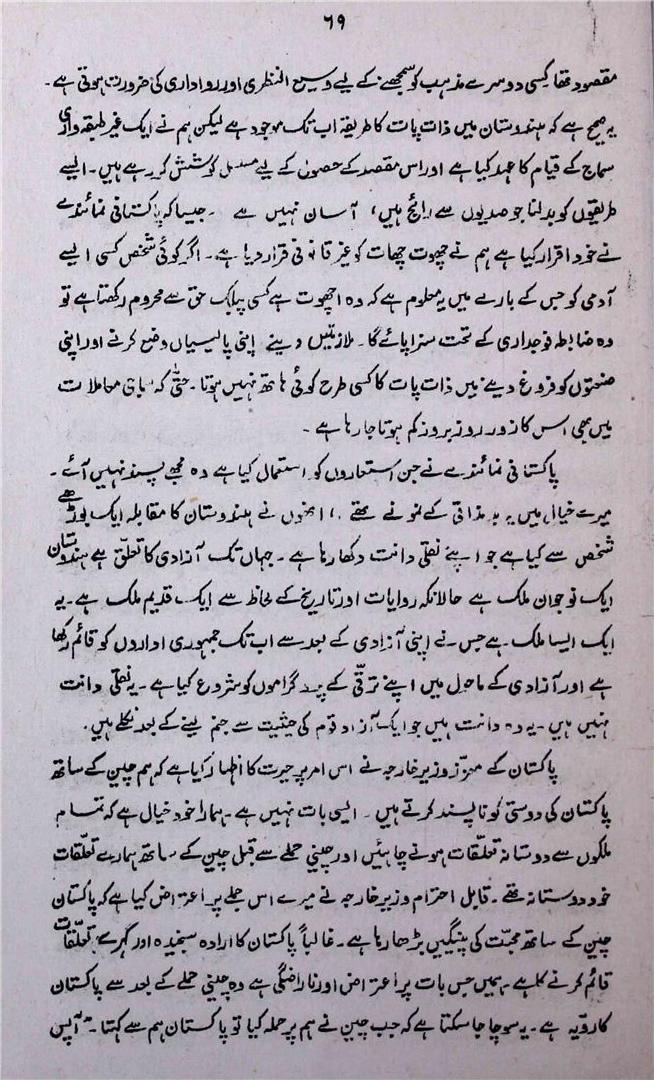 ۶۹
مقصود تھا۔ کسی دوسرے مذہب کو سمجھنے کے لیے وسیع النظری اور رواداری کی ضرورت ہوتی ہے۔
یہ صحیح ہے کہ ہندوستان میں ذات پات کا طریقہ اب تک موجود ہے لیکن ہم نے ایک غیر طبقہ واری
سماج کے قیام کا عہد کیا ہے اور اس مقصد کے حصول کے لیے مسلسل کوشش کر رہے ہیں۔ ایسے
طریقوں کو بدلنا جو صدیوں سے رائج ہیں، آسان نہیں ہے ۔ جیسا کہ پاکستانی نمائندے
نے خود اقرار کیا ہے ہم نے چھوت چھات کو غیر قانونی قرار دیا ہے۔ اگر کوئی شخص کسی ایسے
آدمی کو جس کے بارے میں یہ معلوم ہے کہ وہ اچھوت ہے کسی پبلک حق سے محروم رکھتا ہے تو
وہ ضابطہ فوجداری کے تحت سزا پائے گا۔ ملازمتیں دینے اپنی پالیسیاں وضع کرنے اور اپنی
صنعتوں کو فروغ دینے میں ذات پات کا کسی طرح کوئی ہاتھ نہیں ہوتا۔ حتّٰی کہ سماجی معاملات
میں بھی اس کا زور روز بروز کم ہوتا جا رہا ہے ۔
پاکستانی نمائندے نے جن استعاروں کو استعمال کیا ہے وہ مجھے پسند نہیں آئے ۔
میرے خیال میں یہ بد مذاقی کے نمونے تھے ۔ انھوں نے ہندوستان کا مقابلہ ایک بوڑھے
شخص سے کیا ہے جو اپنے نقلی دانت دکھا رہا ہے ۔ جہاں تک آزادی کا تعلّق ہے ہندوستان
ایک نوجوان ملک ہے حالانکہ روایات اور تاریخ کے لحاظ سے ایک قدیم ملک ہے ۔ یہ
ایک ایسا ملک ہے جس نے اپنی آزادی کے بعد سے اب تک جمہوری اداروں کو قائم رکھا
ہے اور آزادی کے ماحول میں اپنے ترقّی کے پروگراموں کو شروع کیا ہے ۔ یہ نقلی دانت
نہیں ہیں ۔ یہ وہ دانت ہیں جو ایک آزاد قوم کی حیثیت سے جنم لینے کے بعد نکلے ہیں ۔
پاکستان کے معزّز وزیر خارجہ نے اس امر پر حیرت کا اظہار کیا ہے کہ ہم چین کے ساتھ
پاکستان کی دوستی کو نا پسند کرتے ہیں ۔ ایسی بات نہیں ہے ۔ ہمارا خود خیال ہے کہ تمام
ملکوں سے دوستانہ تعلّقات ہونے چاہئیں اور چینی حملے سے قبل چین کے ساتھ ہمارے تعلّقات
خود دوستانہ تھے ۔ قابل احترام وزیر خارجہ نے میرے اس جملے پر اعتراض کیا ہے کہ پاکستان
چین کے ساتھ محبّت کی پینگیں بڑھا رہا ہے ۔ غالباً پاکستان کا ارادہ سنجیدہ اور گہرے تعلّقات
قائم کرنے کا ہے ۔ ہمیں جس بات پر اعتراض اور ناراضگی ہے وہ چینی حملے کے بعد سے پاکستان
کا رویّہ ہے ۔ یہ سوچا جا سکتا ہے کہ جب چین نے ہم پر حملہ کیا تو پاکستان ہم سے کہتا ۔ "آپس